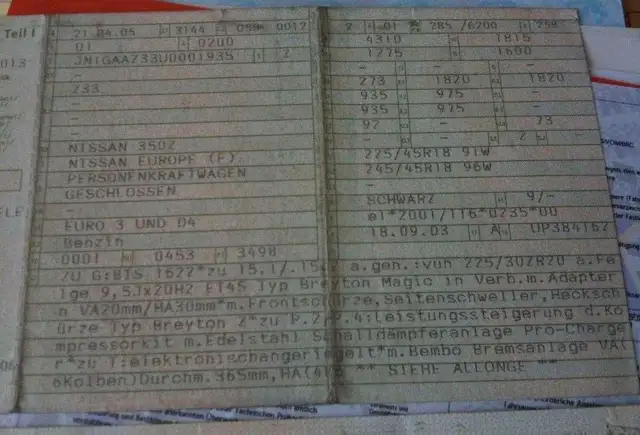 Teil I
21.04.05 3144 0584 0012
01 0200
JN1GAAZ33U0001935 2
-
-
Z33
-
-
NISSAN 350Z
NISSAN EUROPE (F)
PERSONENKRAFTWAGEN
GESCHLOSSEN
-
EURO 3 UND D4
Benzin
0001 0453 3498
2 01 285 /6200 259
4310 1815
1275 1600
- -
273 1820 1820
935 975 -
935 975 -
92 - 73
- - 2 -
225/45R18 91W
245/45R18 96W
-
SCHWARZ 9/-
e1*2001/116*0235*00
18.09.03 A UP384162
ZU G:BIS 1622*zu 15.1/ a.gen.:von 225/30ZR20 a.Fe
lge 9,5Jx20H2 ET45 Typ Breyton Magic in Verb.m.Adapter
n VA20mm/HA30mm*m.Frontschürze,Seitenschweller,Hecksch
ürze Typ Breyton Z*zu P.2/P.4:Leistungssteigerung d.Ko
mpressorkit m.Edelstahl Schalldämpferanlage Pro-Charge
r*zu T:elektronischangeriegelt*m.Bembo Bremsanlage VA(
6Kolben)Durchm.365mm,HA(4 ** SIEHE ALLONGE **